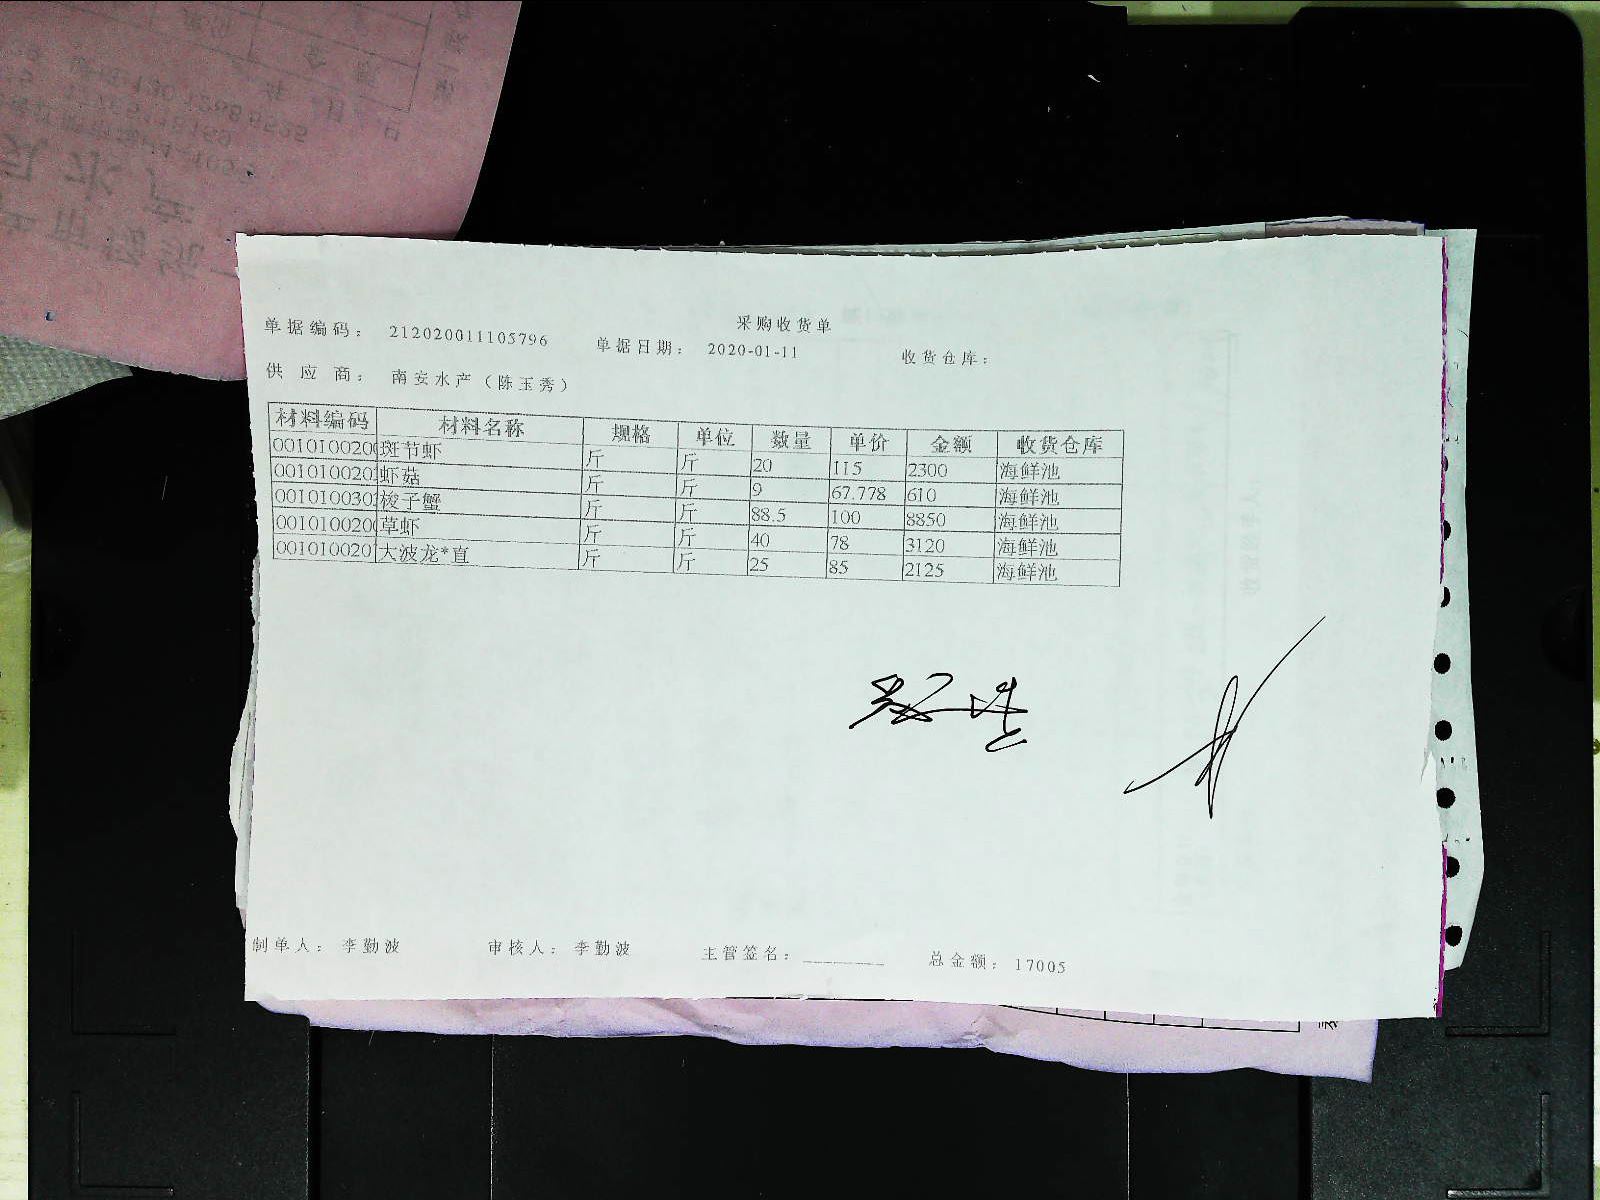 采购收货单
单据编码： 212020011105796 单据日期： 2020-01-11 收货仓库：
供 应 商： 南安水产（陈玉秀）
材料编码 材料名称 规格 单位 数量 单价 金额 收货仓库
0010100200 斑节虾 斤 斤 20 115 2300 海鲜池
001010020 虾菇 斤 斤 9 67.778 610 海鲜池
001010030 梭子蟹 斤 斤 88.5 100 8850 海鲜池
0010100200 草虾 斤 斤 40 78 3120 海鲜池
001010020 大波龙*直 斤 斤 25 85 2125 海鲜池
制单人： 李勤波 审核人： 李勤波 主管签名： ________ 总金额： 17005